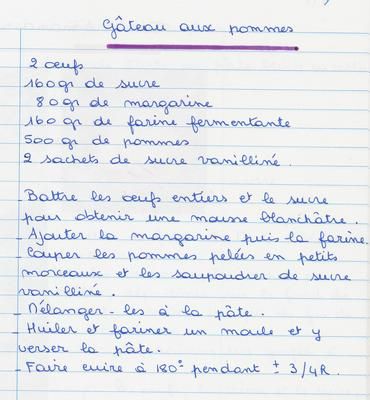 Gâteau aux pommes
2 œufs
160 gr de sucre
80 gr de margarine
160 gr de farine fermentante
500 gr de pommes
2 sachets de sucre vanilliné.
- Battre les œufs entiers et le sucre
pour obtenir une mousse blanchâtre.
- Ajouter la margarine puis la farine.
- Couper les pommes pelées en petits
morceaux et les saupoudrer de sucre
vanilliné.
- Mélanger-les à la pâte.
- Huiler et fariner un moule et y
verser la pâte.
- Faire cuire à 180° pendant ± 3/4R.